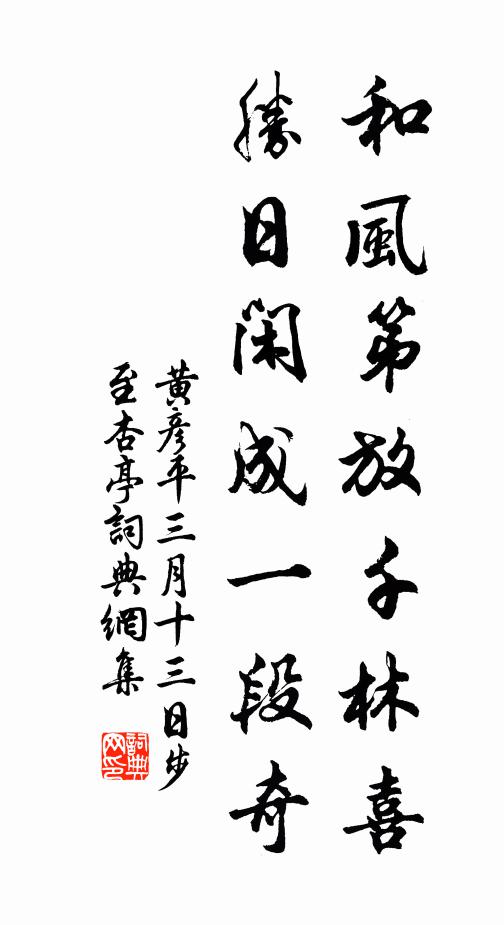 和風第放千林喜
勝日閑成一段奇
黄彦平三月十三日步
至杏亭詞典網集
詞典網印